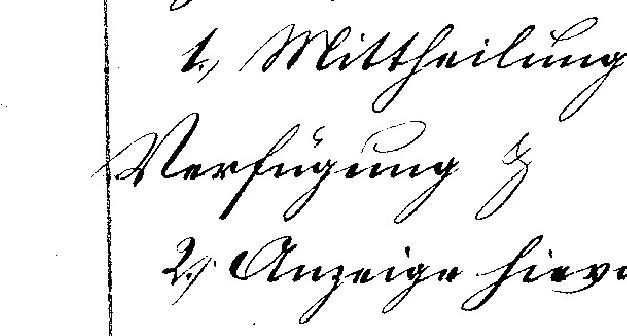 1., Mittheilung
Verfügung
2., Anzeige hiev